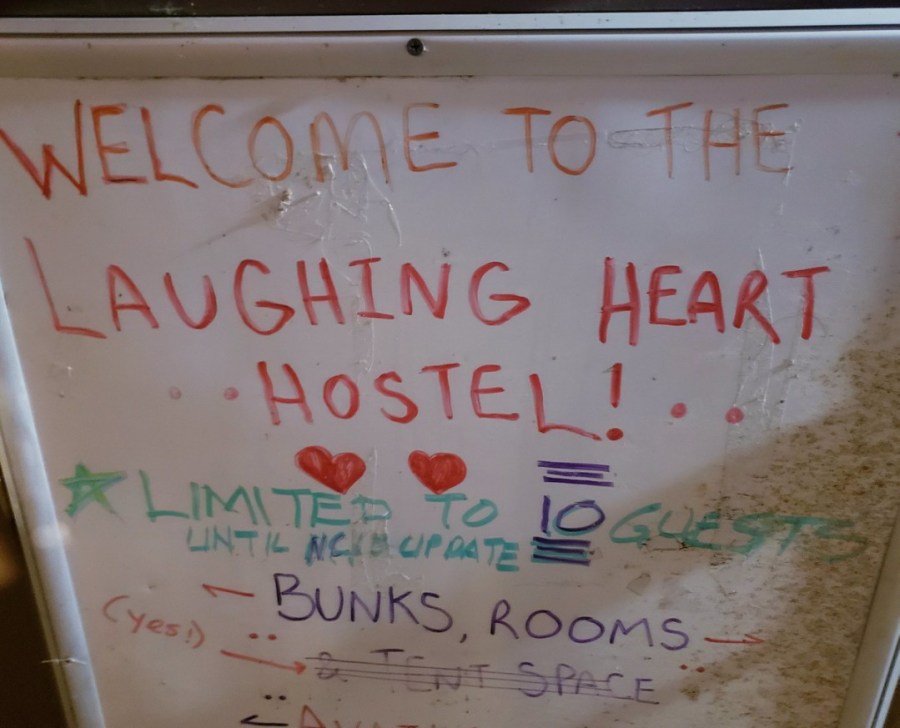 WELCOME TO THE
LAUGHING HEART
..HOSTEL!..
LIMITED TO 10 GUESTS
UNTIL UPDATE
BUNKS, ROOMS
(yes!)
& TENT SPACE